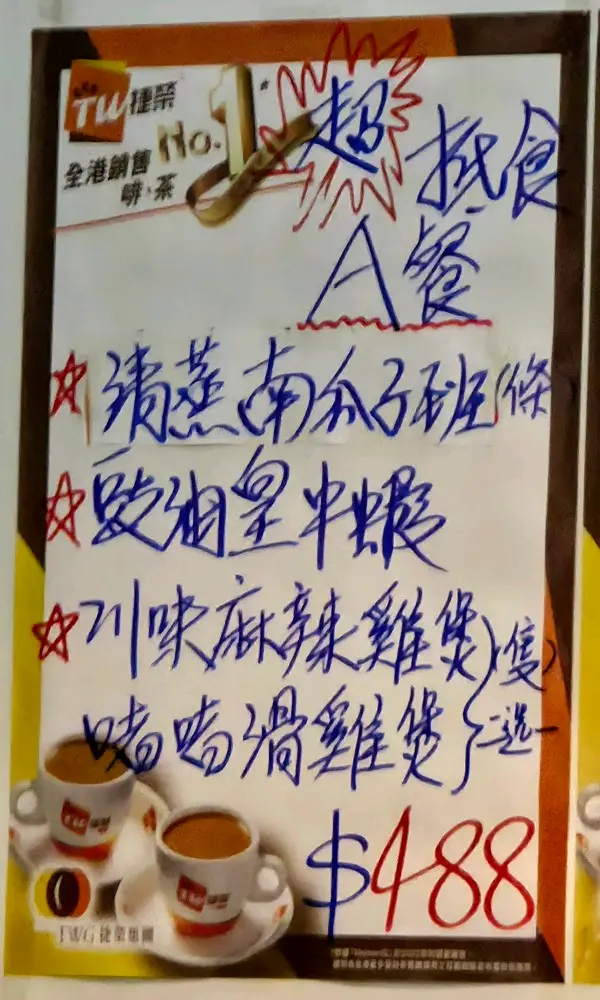 TW捷榮
No.1
全港銷售
啡、茶
超抵食
A餐
☆清蒸南瓜子班(條
☆豉油皇中蝦
☆川味麻辣雞煲
啫啫滑雞煲
(隻)
二选一
$488
TWG 捷榮集團